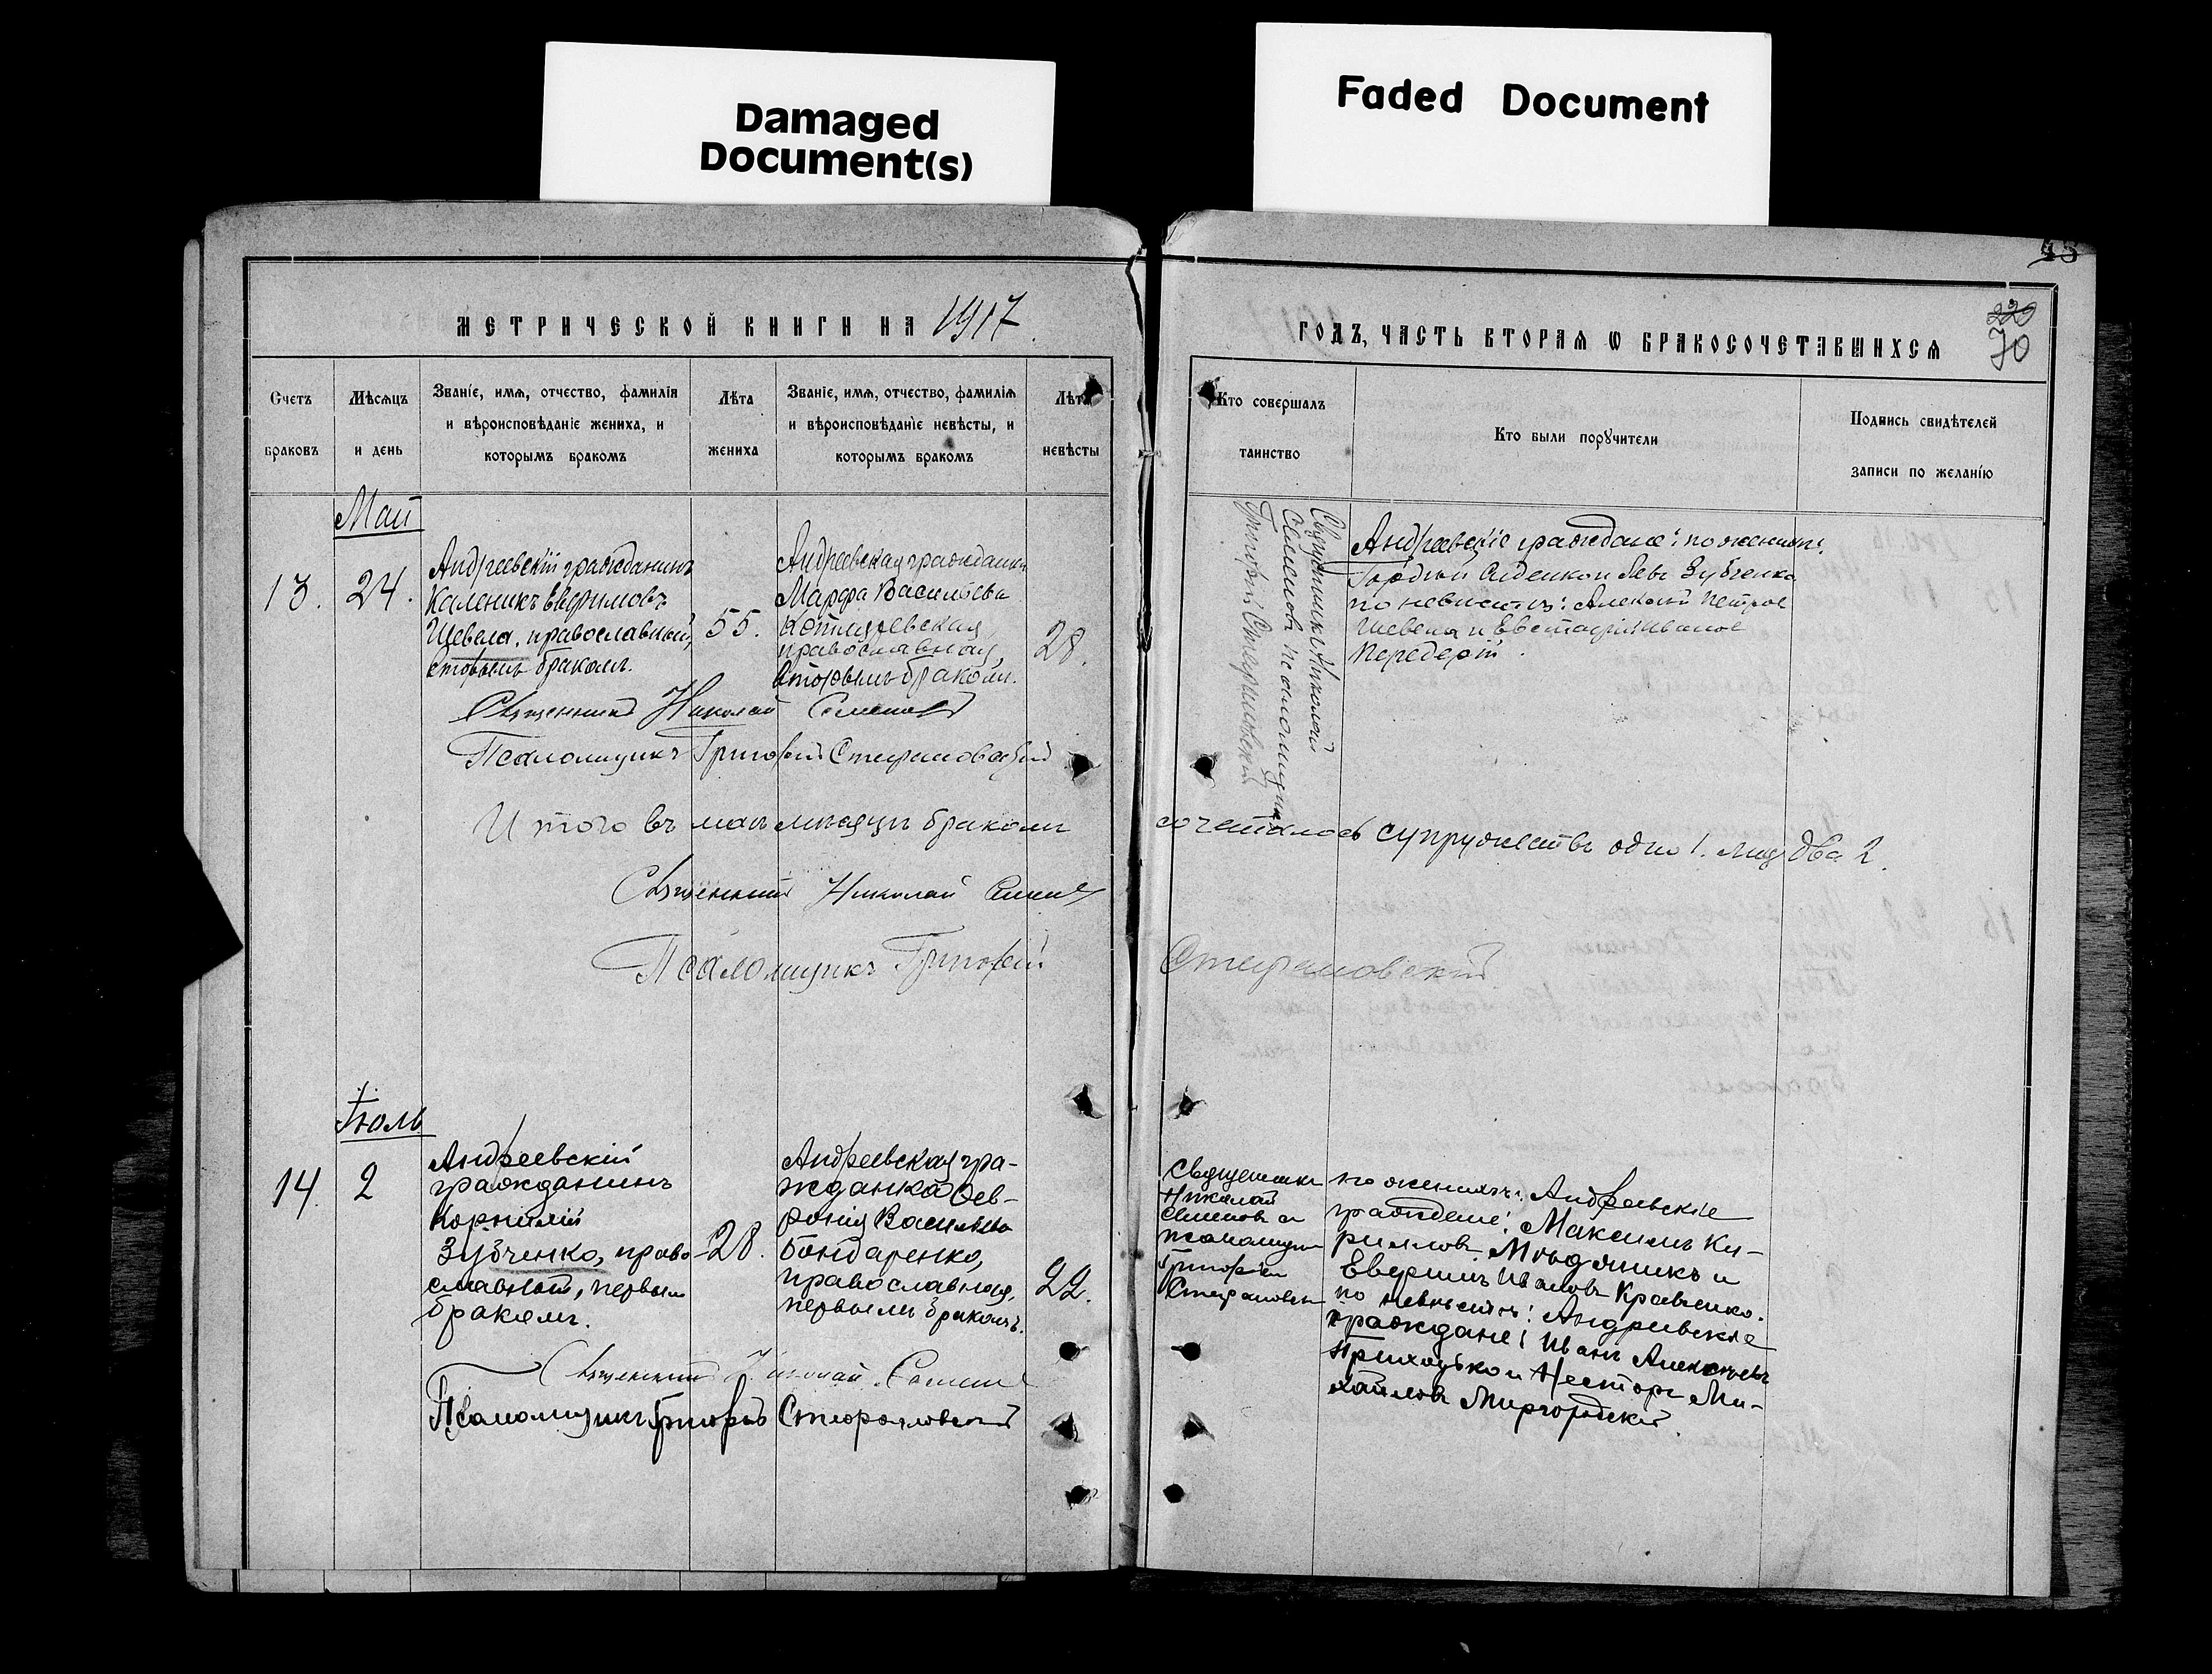 Damaged
Document(s)
Faded Document
43
МЕТРИЧЕСКОЙ КНИГИ НА 1917
ГОДЪ, ЧАСТЬ ВТОРАЯ Ѡ БРАКОСОЧЕТАВШИХСЯ
220
70
Счетъ
браковъ
Мѣсяцъ
и день
Званіе, имя, отчество, фамилія
и вѣроисповѣданіе жениха, и
которымъ бракомъ
Лѣта
жениха
Званіе, имя, отчество, фамилія
и вѣроисповѣданіе невѣсты, и
которымъ бракомъ
Лѣта
невѣсты
Кто совершалъ
таинство
Кто были порꙋчители
Подпись свидѣтелей
записи по желанію
Май
13.
24.
Андреевскій гражданинъ
Каленикъ Евфимовъ
Шевела, православный,
вторымъ бракомъ.
55.
Андреевская гражданка
Марфа Васильева
православная,
вторымъ бракомъ.
28.
Священникъ Николай
Семеновъ и псаломщикъ
Григорій Стефановскій
Андреевскіе граждане: по женихѣ:
Гордій Диденко и Левъ Зубченко
по невѣстѣ: Алексій Петровъ
Шевела и Евстафій Ивановъ
Передерій.
Священникъ Николай Семеновъ
Псаломщикъ Григорій Стефановскій
Итого въ маѣ мѣсяцѣ бракомъ
сочеталось супружествъ одно 1. лицъ два 2.
Священникъ Николай Семеновъ
Псаломщикъ Григорій
Стефановскій
Іюль
14.
2
Андреевскій
гражданинъ
Корнилій
Зубченко, право-
славный, первым
бракомъ.
28.
Андреевская гра-
жданка Фев-
ронія Васильева
Бондаренко,
православная,
первымъ бракомъ.
22.
Священникъ
Николай
Семеновъ и
псаломщикъ
Григорій
Стефановскій
по женихѣ: Андреевскіе
граждане: Максимъ Ки-
рилловъ Мѣдяникъ и
Евфимъ Ивановъ Кравченко.
по невѣстѣ: Андреевскіе
граждане: Иванъ Алексѣевъ
Приходько и Несторъ Ми-
хайловъ Миргородскій.
Священникъ Николай Семеновъ
Псаломщикъ Григорій Стефановский